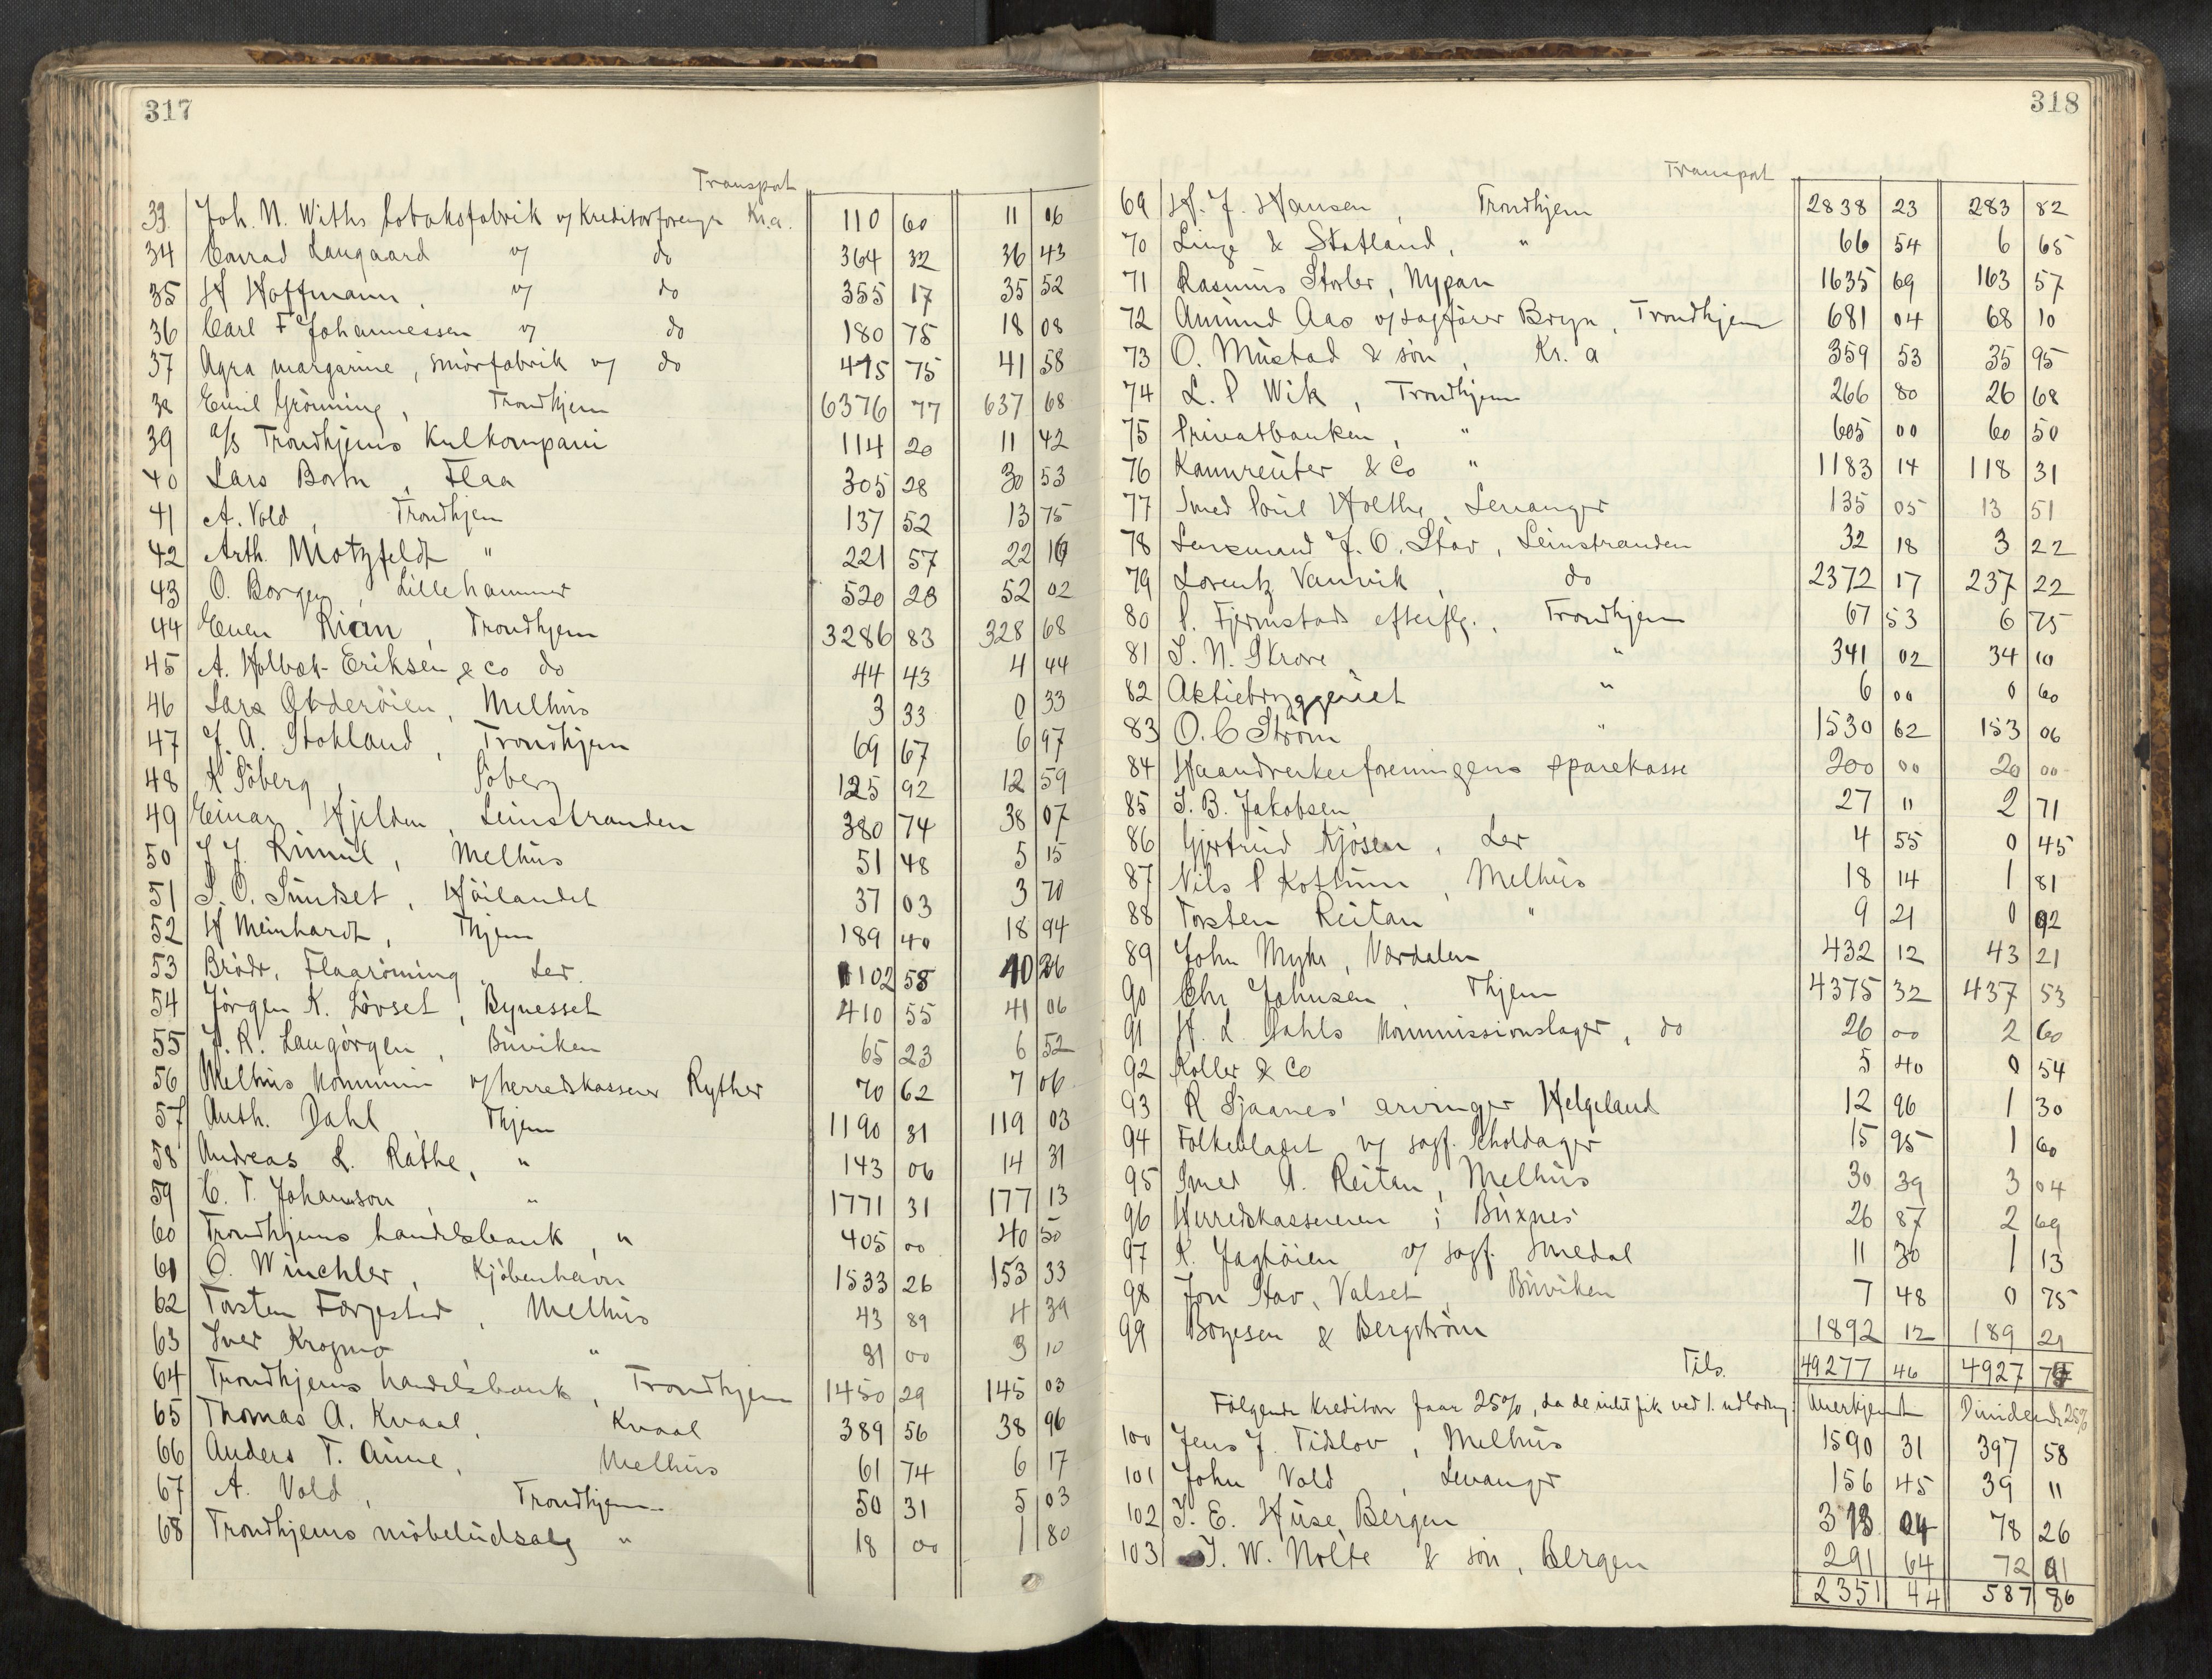 317
Transport
33 Joh. N. Withs tobaksfabrik v/ Kreditorforeninga Kr.a. 110 60 11 06
34 Conrad Langaard v/ do 364 32 36 43
35 H Hoffmann, v/ do 355 17 35 52
36 Carl F Johannessen v/ do 180 75 18 08
37 Agra margarine, smörfabrik v/ do 415 75 41 58
38 Emil Grönning, Trondhjem 6376 77 637 68
39 a/s Trondhjems Kulkompani 114 20 11 42
40 Lars Borten, Flaa 305 28 30 53
41 A. Vold, Trondhjem 137 52 13 75
42 Arth. Motzfeldt " 221 57 22 16
43 O. Borgen, Lillehammer 520 23 52 02
44 Even Rian, Trondhjem 3286 83 328 68
45 A. Holbæk-Eriksen & co do 44 43 4 44
46 Lars Öderöien, Melhus 3 33 0 33
47 J. A. Stokland, Trondhjem 69 67 6 97
48 K Söberg, Söberg 125 92 12 59
49 Einar Hjelden, Leinstranden 380 74 38 07
50 J J. Rimul, Melhus 51 48 5 15
51 S. O. Sundset, Höilandet 37 03 3 70
52 H Meinhardt, Thjem 189 40 18 94
53 Brödr. Flaarönning, Ler. 102 58 10 26
54 Jörgen K. Lövset, Bynesset 410 55 41 06
55 J. R. Langörgen, Buviken 65 23 6 52
56 Melhus kommun v/ herredskasserer Ryther 70 62 7 06
57 Anth. Dahl, Thjem 1190 31 119 03
58 Andreas L. Råthe, " 143 06 14 31
59 C. T. Johannson, " 1771 31 177 13
60 Trondhjems handelsbank, " 405 00 40 50
61 O. Winchler, Kjöbenhavn 1533 26 153 33
62 Torsten Færgestad, Melhus 43 89 4 39
63 Iver Krogmo " 31 00 3 10
64 Trondhjems handelsbank, Trondhjem 1450 29 145 03
65 Thomas A. Kvaal, Kvaal 389 56 38 96
66 Anders T. Aune, Melhus 61 74 6 17
67 A. Vold, Trondhjem 50 31 5 03
68 Trondhjems möbeludsalg " 18 00 1 80
318
Transport
69 H. J. Hansen, Trondhjem 2838 23 283 82
70 Linge & Statland, " 66 54 6 65
71 Rasmus Storler, Nypan 1635 69 163 57
72 Amund Aas v/ sagförer Bryn, Trondhjem 681 04 68 10
73 O. Mustad & sön, Kr. a 359 53 35 95
74 L. P Wik, Trondhjem 266 80 26 68
75 Privatbanken, " 605 00 60 50
76 Kannreuter & Co " 1183 14 118 31
77 Smed Poul Holthe, Levanger 135 05 13 51
78 Lensmand J. O. Stav, Leinstranden 32 18 3 22
79 Lorentz Vannvik, do 2372 17 237 22
80 P. Fjermstads efterflg., Trondhjem 67 53 6 75
81 I. N. Skrove, " 341 02 34 10
82 Aktiebryggeriet " 6 00 0 60
83 O. C Ström " 1530 62 153 06
84 Haandverkerforeningens sparekasse 200 00 20 00
85 I. B. Jakobsen 27 11 2 71
86 Gjertrud Kjösen, Ler 4 55 0 45
87 Nils P Kottum, Melhus 18 14 1 81
88 Torsten Reitan " 9 21 0 92
89 John Myhr, Værdalen 432 12 43 21
90 Chr Johnsen, Thjem 4375 32 437 53
91 H. L. Dahls kommissionslager, do 26 00 2 60
92 Koller & Co 5 40 0 54
93 R Sjaanes' arvinger Helgeland 12 96 1 30
94 Folkebladet v/ sagf. Scholdager 15 95 1 60
95 Smed A. Reitan, Melhus 30 39 3 04
96 Herredskassereren i Buxnes 26 87 2 69
97 K. Jagtöien v/ sagf. Smedal 11 30 1 13
98 Jon Stav, Valset, Buviken 7 48 0 75
99 Bogesen & Bergström 1892 12 189 21
Tils. 49277 46 4927 75
Følgende kreditorer faar 25%, da de intet fik ved 1. udlodning: Anerkjendt Dividende 25%
100 Jens J. Tidlov, Melhus 1590 31 397 58
101 John Vold, Levanger 156 45 39 11
102 I. E. Huse, Bergen 313 04 78 26
103 I. W. Nolte & sön, Bergen 291 64 72 91
2351 44 587 86